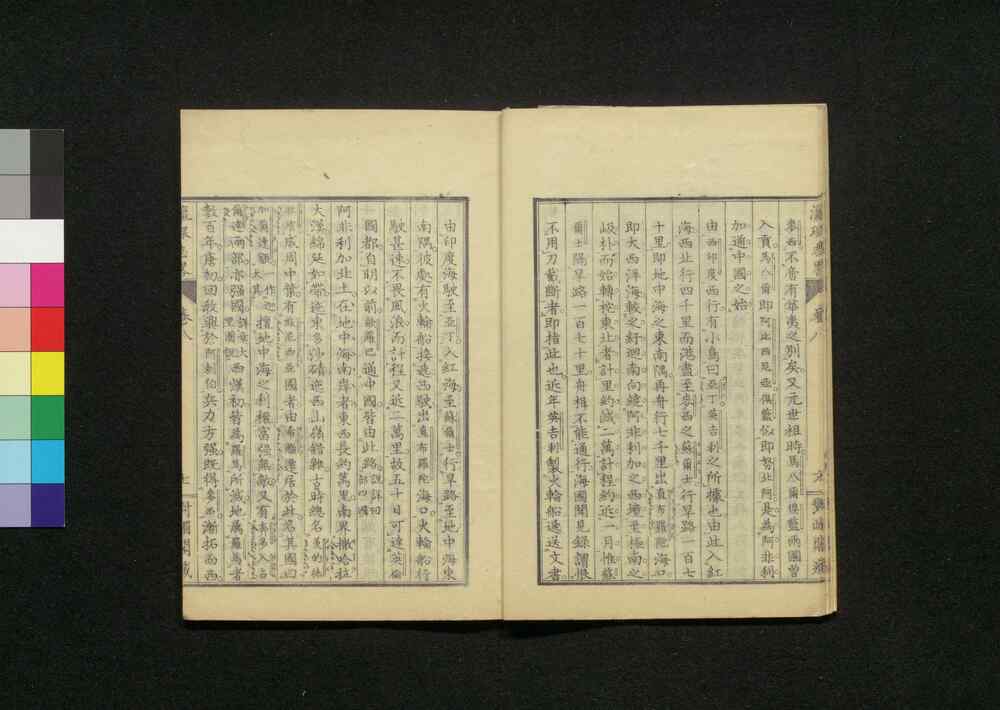 瀛環志畧 卷八
麥西不啻有華夷之別矣又元世祖時馬八爾俱藍兩國曾
入貢馬八爾即阿比西尼亞俱藍似即努北阿是為阿非利
加通中國之始
由西印度西行有小島曰亞丁英吉利之所據也由此入紅
海西北行四千里而港盡至麥西之蘇爾士行旱路一百七
十里即地中海之東南隅再舟行七千里出直布羅陀海口
即大西洋海較之紆迴南向繞阿非利加之西境至極南之
岌朴而始轉柁東北者計里約減二萬計程約近一月惟蘇
爾士隔旱路一百七十里舟楫不能通行海國聞見錄謂恨
不用刀截斷者即指此也近年英吉利製火輪船遞送文書
由印度海駛至亞丁入紅海至蘇爾士行旱路至地中海東
南隅彼處有火輪船接遞西駛出直布羅陀海口火輪船行
駛甚速不畏風浪而計程又近二萬里故五十日可達英倫
國都自明以前歐羅巴通中國皆由此路
阿非利加北土在地中海南岸者東西長約萬里南界撒哈拉
大漠綿延如帶迤東多沙磧迤西山嶺錯雜古時總名
成周中葉有 西亞國者由 遷居於此名其國曰
加爾達額 一作 擅地中海之利權富强無敵又有
爾達兩部亦强國 西漢初皆為羅馬所滅地屬羅馬者
數百年唐初回教興於阿剌伯兵力方强既得麥西漸拓而西
瀛環志畧 卷八